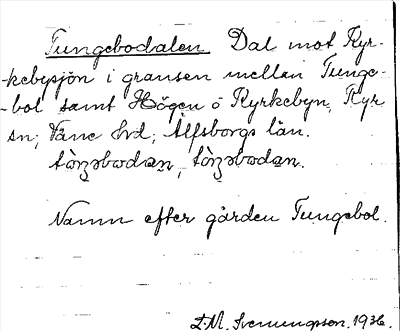 Tungebodalen Dal mot Kyr-
-kebysjön i gränsen mellan Tunge-
-bol samt Högen ö Kyrkebyn, Kyr
sn; Väne hd; Älfsborgs län.
Namn efter gården Tungebol.
L.M. Svenungsson, 1936.